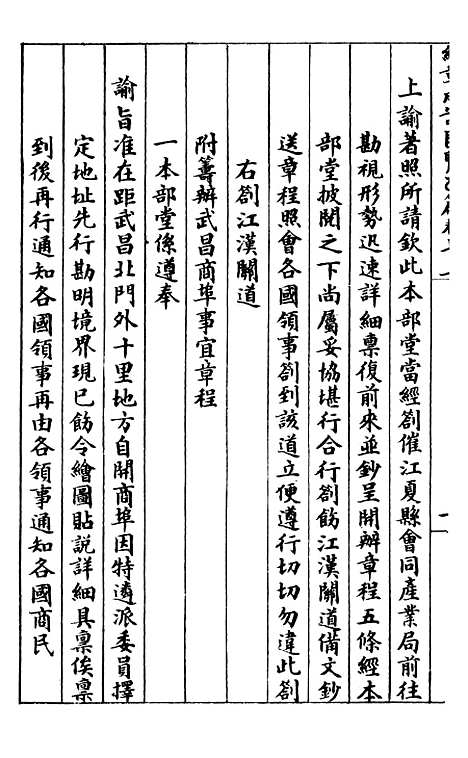 上諭著照所請欽此本部堂當經劄催江夏縣會同產業局前往
勘視形勢迅速詳細稟復前來並鈔呈開辦章程五條經本
部堂披閱之下尚屬妥協堪行合行劄飭江漢關道備文鈔
送章程照會各國領事劄到該道立便遵行切切勿違此劄
右劄江漢關道
附籌辦武昌商埠事宜章程
一本部堂係遵奉
諭旨准在距武昌北門外十里地方自開商埠因特遴派委員擇
定地址先行勘明境界現已飭令繪圖貼說詳細具稟俟稟
到後再行通知各國領事再由各領事通知各國商民